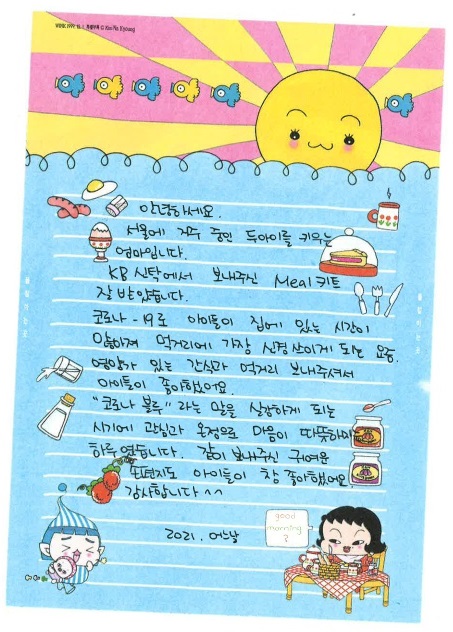 안녕하세요.
서울에 거주 중인 두아이를 키우는
엄마입니다.
KB 신탁에서 보내주신 Meal키트
잘 받았습니다.
코로나-19로 아이들이 집에 있는 시간이
많아져 먹거리에 가장 신경쓰이게 되는 요즘,
영양가 있는 간식과 먹거리 보내주셔서
아이들이 좋아했어요.
"코로나 블루" 라는 말을 실감하게 되는
시기에 관심과 온정으로 마음이 따뜻해지는
하루 였습니다. 같이 보내주신 귀여운
손편지도 아이들이 참 좋아했어요.
감사합니다 ^^
2021. 어느날
good
morning
?